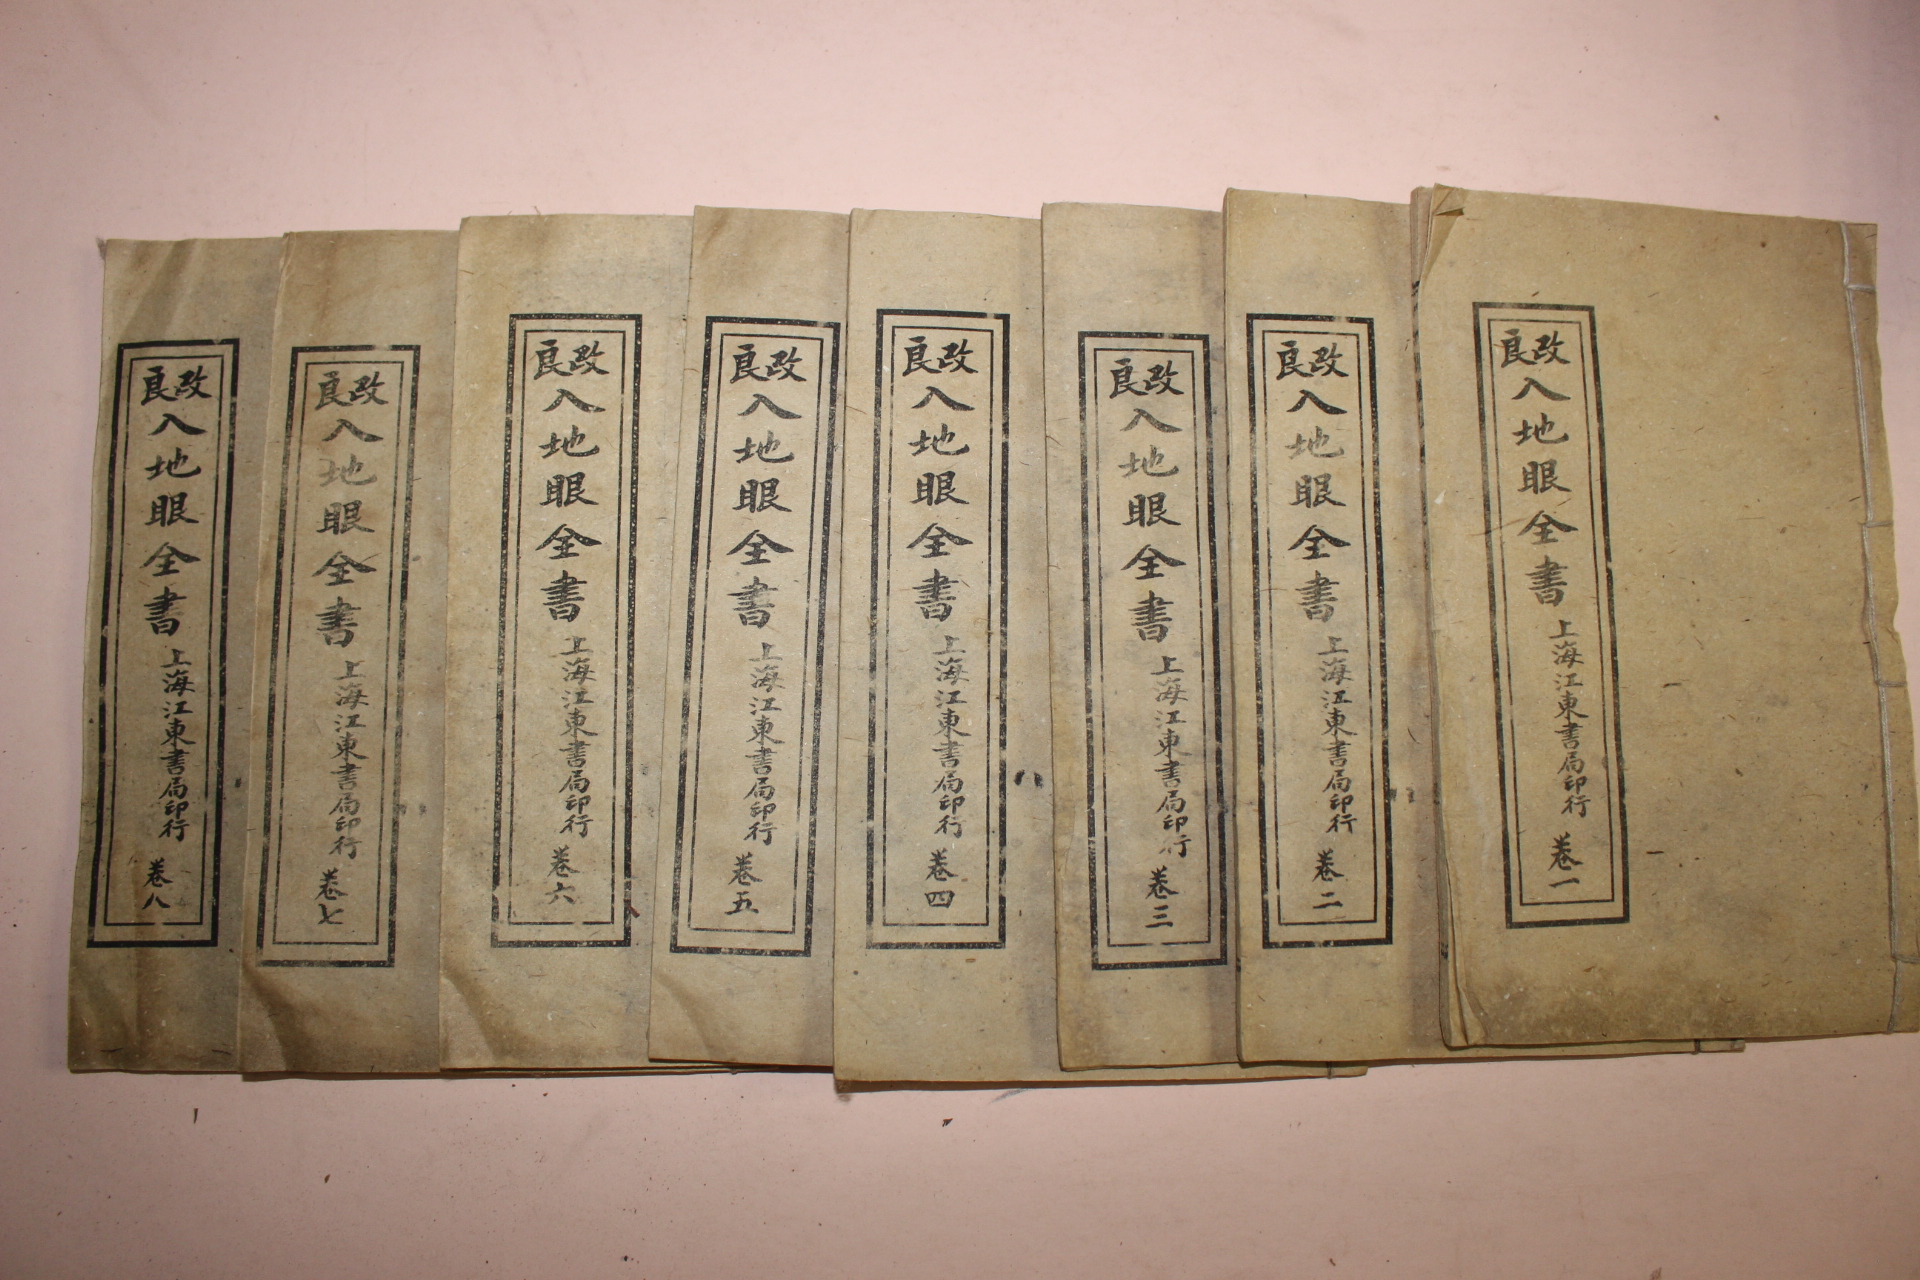 改良
入地眼全書
上海江東書局印行
卷一
改良
入地眼全書
上海江東書局印行
卷二
改良
入地眼全書
上海江東書局印行
卷三
改良
入地眼全書
上海江東書局印行
卷四
改良
入地眼全書
上海江東書局印行
卷五
改良
入地眼全書
上海江東書局印行
卷六
改良
入地眼全書
上海江東書局印行
卷七
改良
入地眼全書
上海江東書局印行
卷八